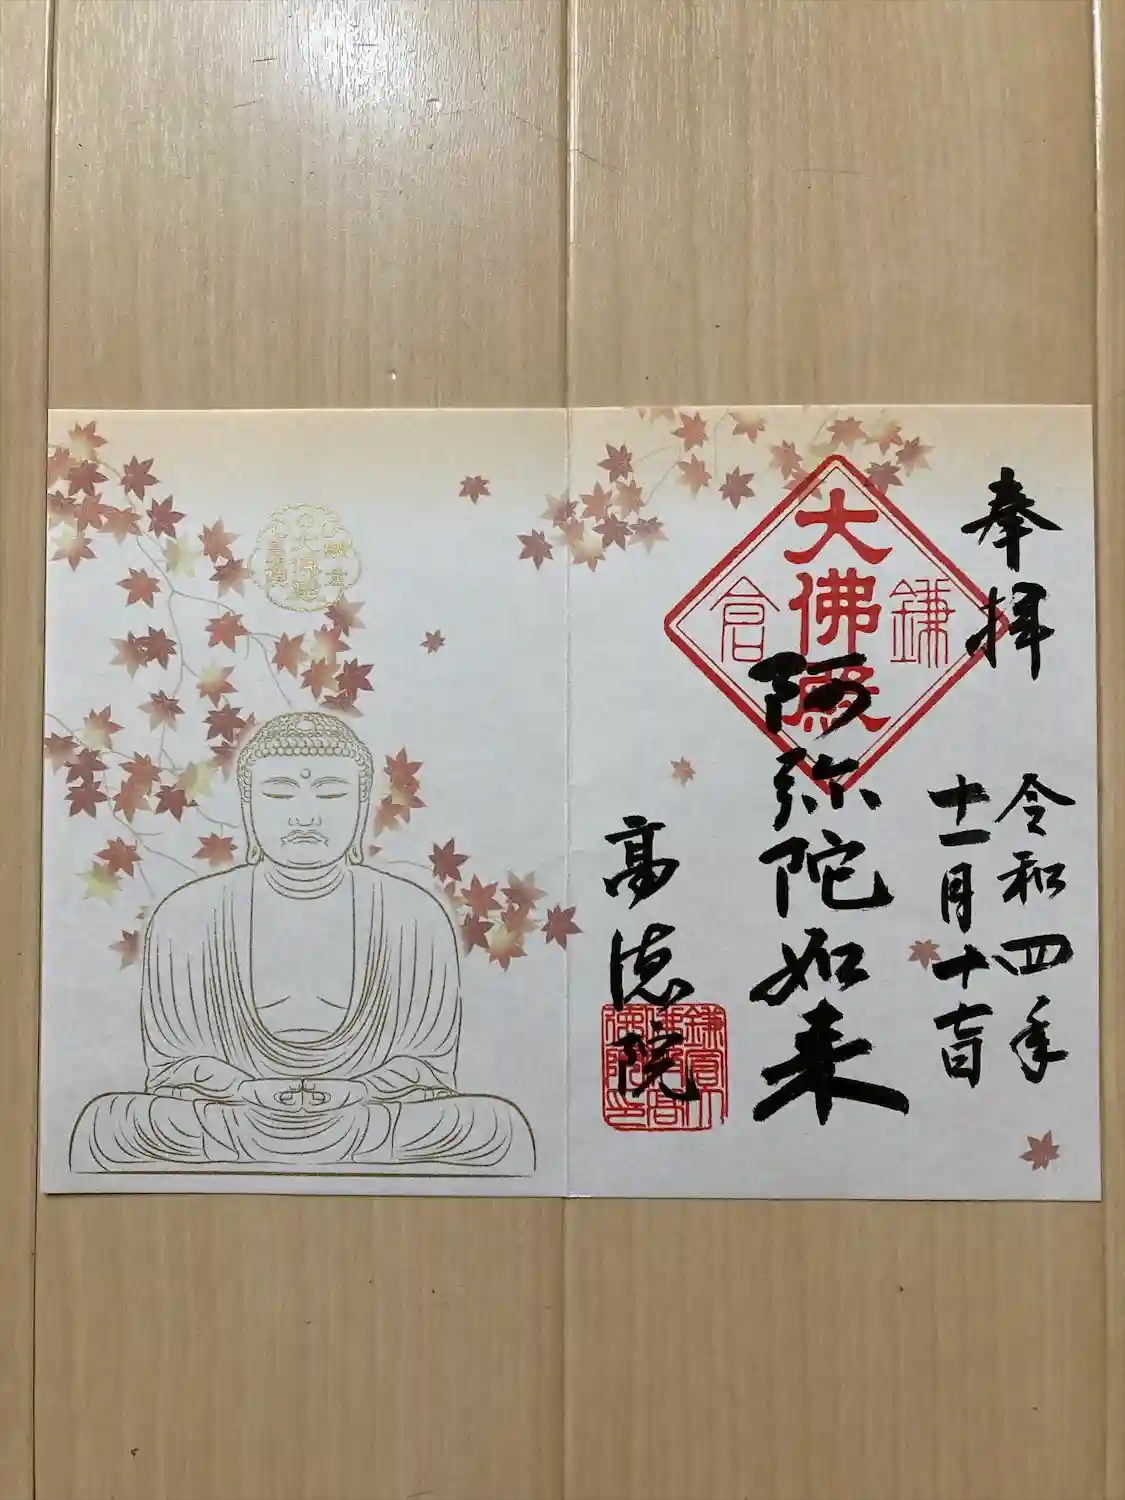 奉拝
令和四年
十一月十七日
鎌倉
大佛殿
阿弥陀如来
高徳院
鎌倉大
佛殿高
徳院印